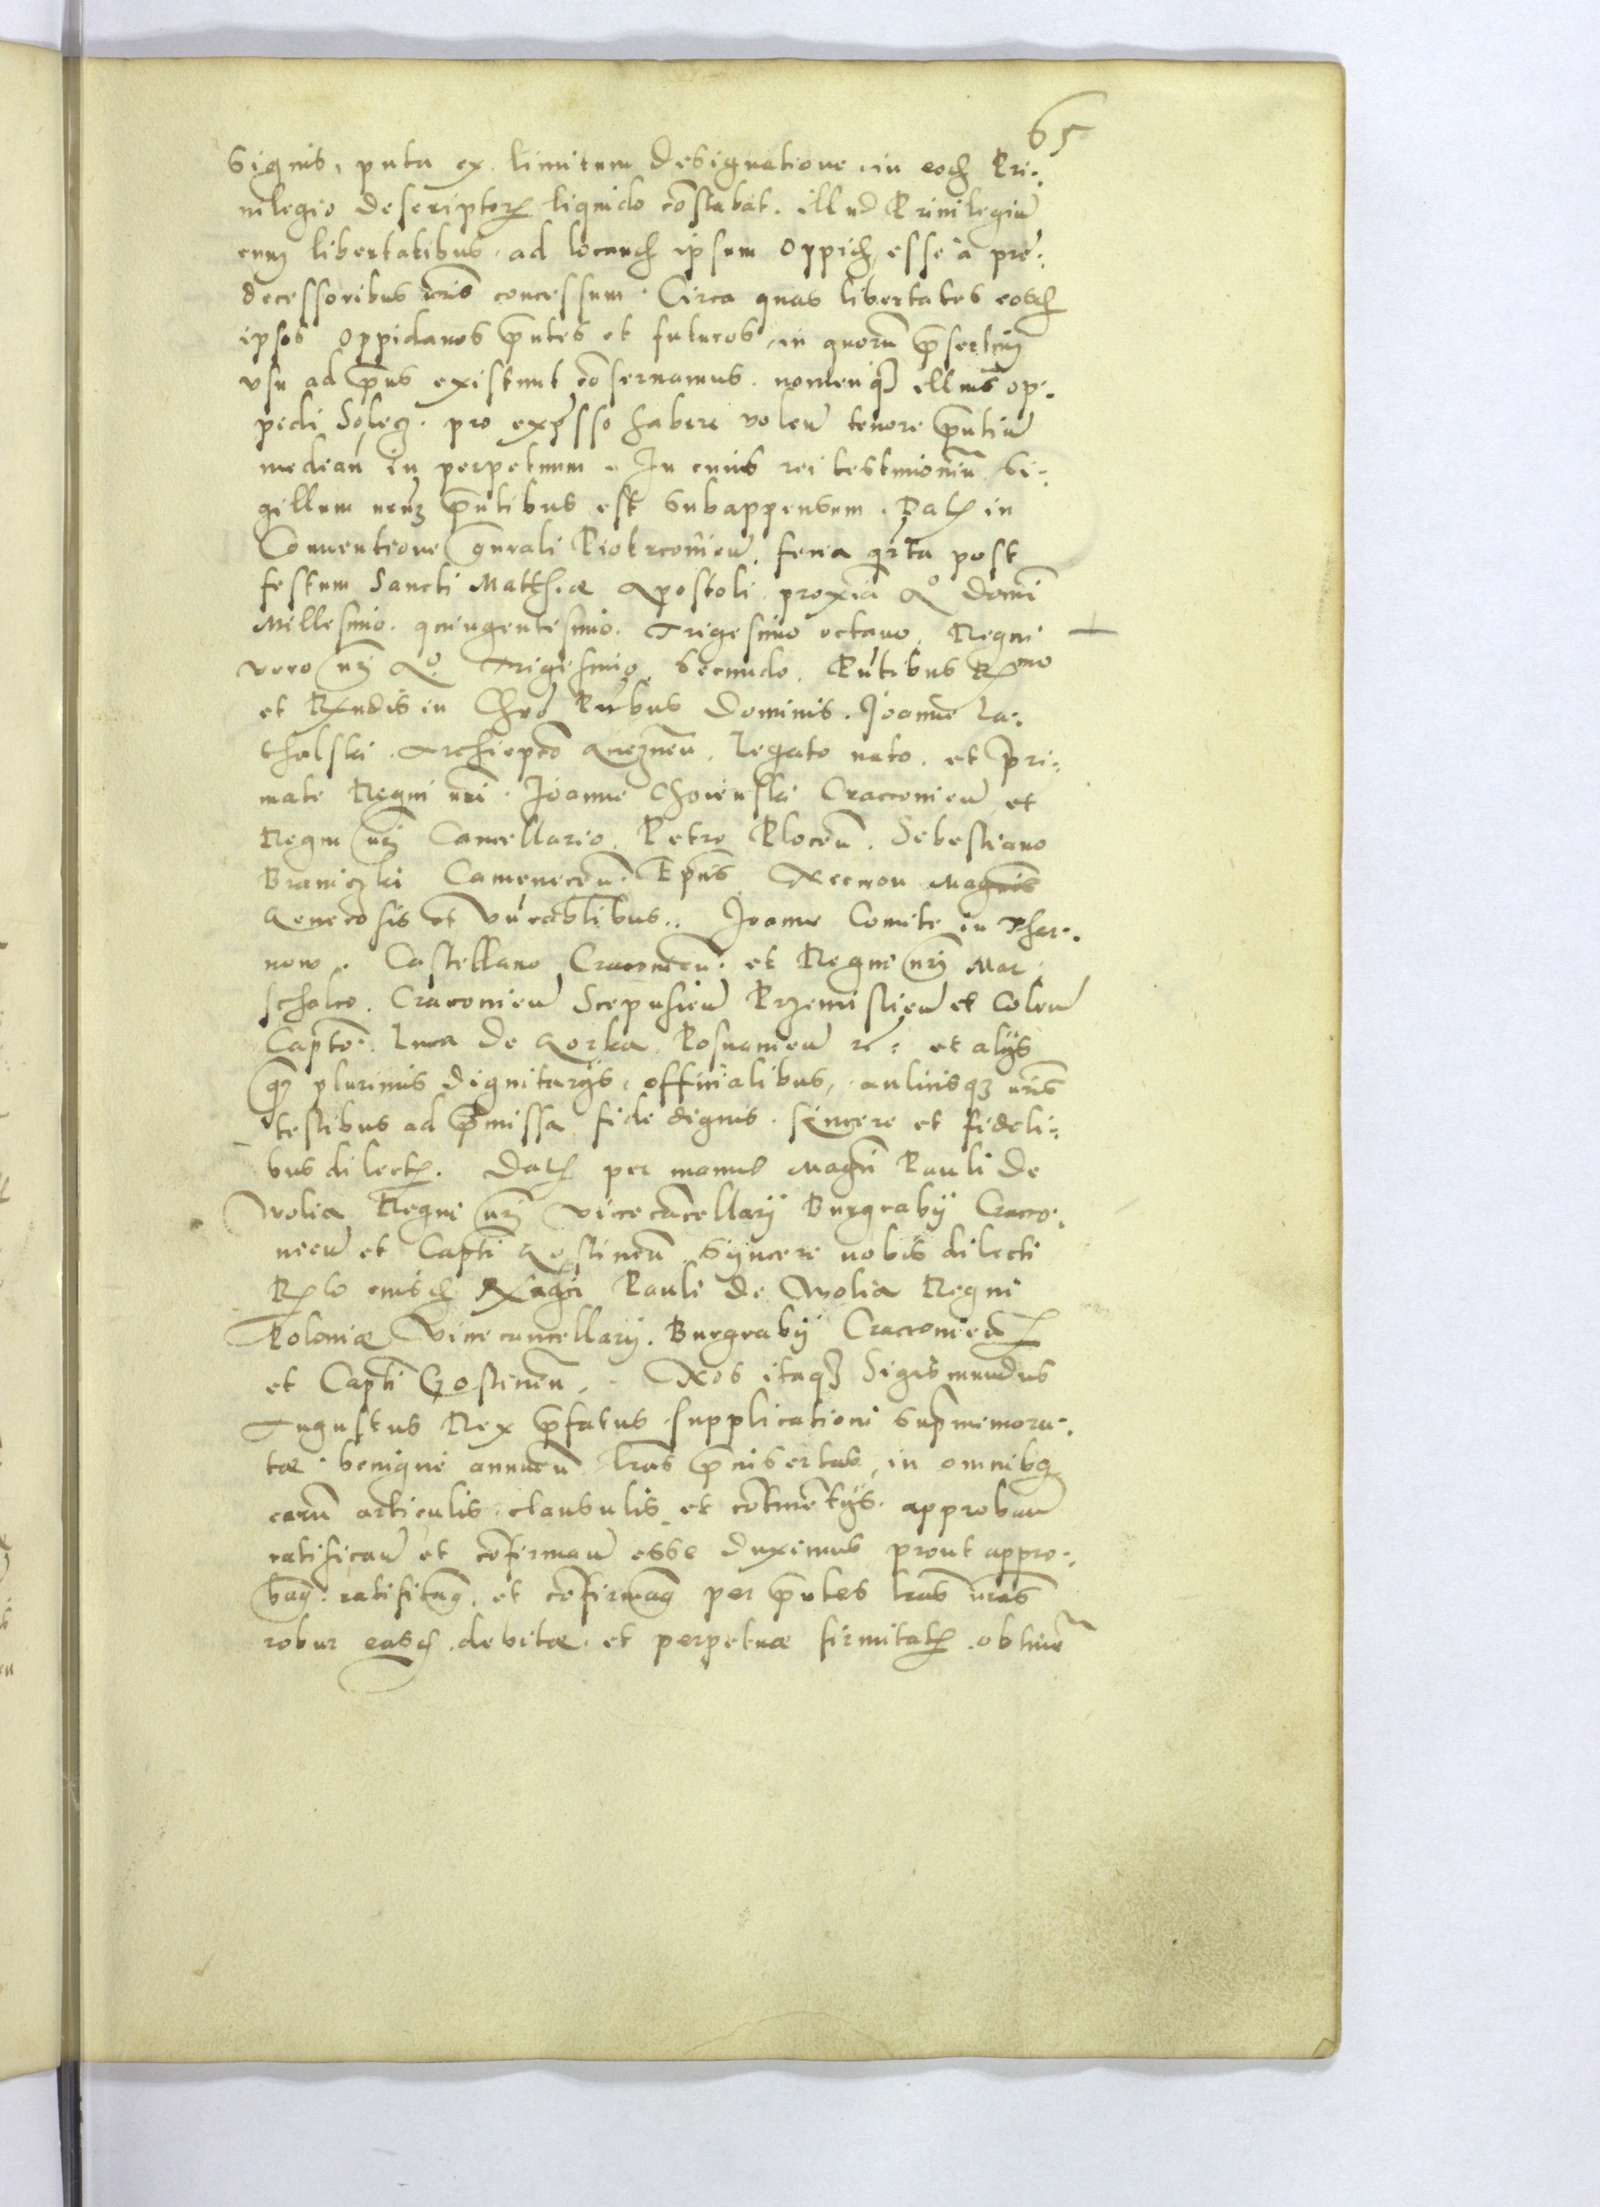 65
signis, puta ex limitum designatione, in eod Pri:
uilegio descriptor liquido constabat. illud Priuilegiū
cum libertatibus ad locand ipsum Oppid esse à præ:
decessoribus nris concessum. Circa quas libertates eosd
ipsos Oppidanos pntes et futuros, in quorū psertim
vsu ad pns existunt conseruamus. nomenq illius op:
pidi Solecz. pro expresso habere volen tenore pntiū
median in perpetuum. In cuius rei testimoniū Si:
gillum nrum pntibus est subappensum. Dat in
Conuentione gnrali Piotrcouien, feria qrta post
festum Sancti Matthiæ Apostoli proxīa A° Domi
Millesimo. quingentesimo. Trigesimo octauo. Regni
vero nri A° Trigesimo secundo. Pntibus R mo
et Rndis in Chro Prbus Dominis. Joanne La:
thalski Archiepco Gneznen. legato nato. et pri:
mate Regni nri. Joanne Choienski Cracouien et
Regni nri Cancellario. Petro Plocen. Sebastiano
Braniczki Camenecen. Epis Necnon Magcis
Generosis et Vnrablibus. Joanne Comite in Thar:
now. Castellano Cracouien. et Regni nri Mar
schalco. Cracouien Scepusien Przemislien et Colen
Capto. Luca de Gorka. Posnanien rc: et alijs
q plurimis dignitarijs, officialibus, aulicisq nris
testibus ad pmissa fide dignis. Sincere et fideli:
bus dilect. Dat per manus Magci Pauli de
Wolia Regni nri Vicecancellarij Burgrabij Craco:
uien et Capti Gostinen. Syncere nobis dilecti
Rlo eiusd Magci Pauli de Wolia Regni
Poloniæ Vicecancellarij. Burgrabij Cracouien
et Capti Gostinen. Nos itaq Sigismundus
Augustus Rex pfatus supplicationi supmemora:
tæ benigne annuen lras pinsertas, in omnibq
earū articulis, clausulis et contmentijs approban
ratifican et confirman esse duximus prout appro:
bamq. ratificamq. et confirmamq per pntes lras nras
robur easd. debitæ et perpetuæ firmitat. obtiner